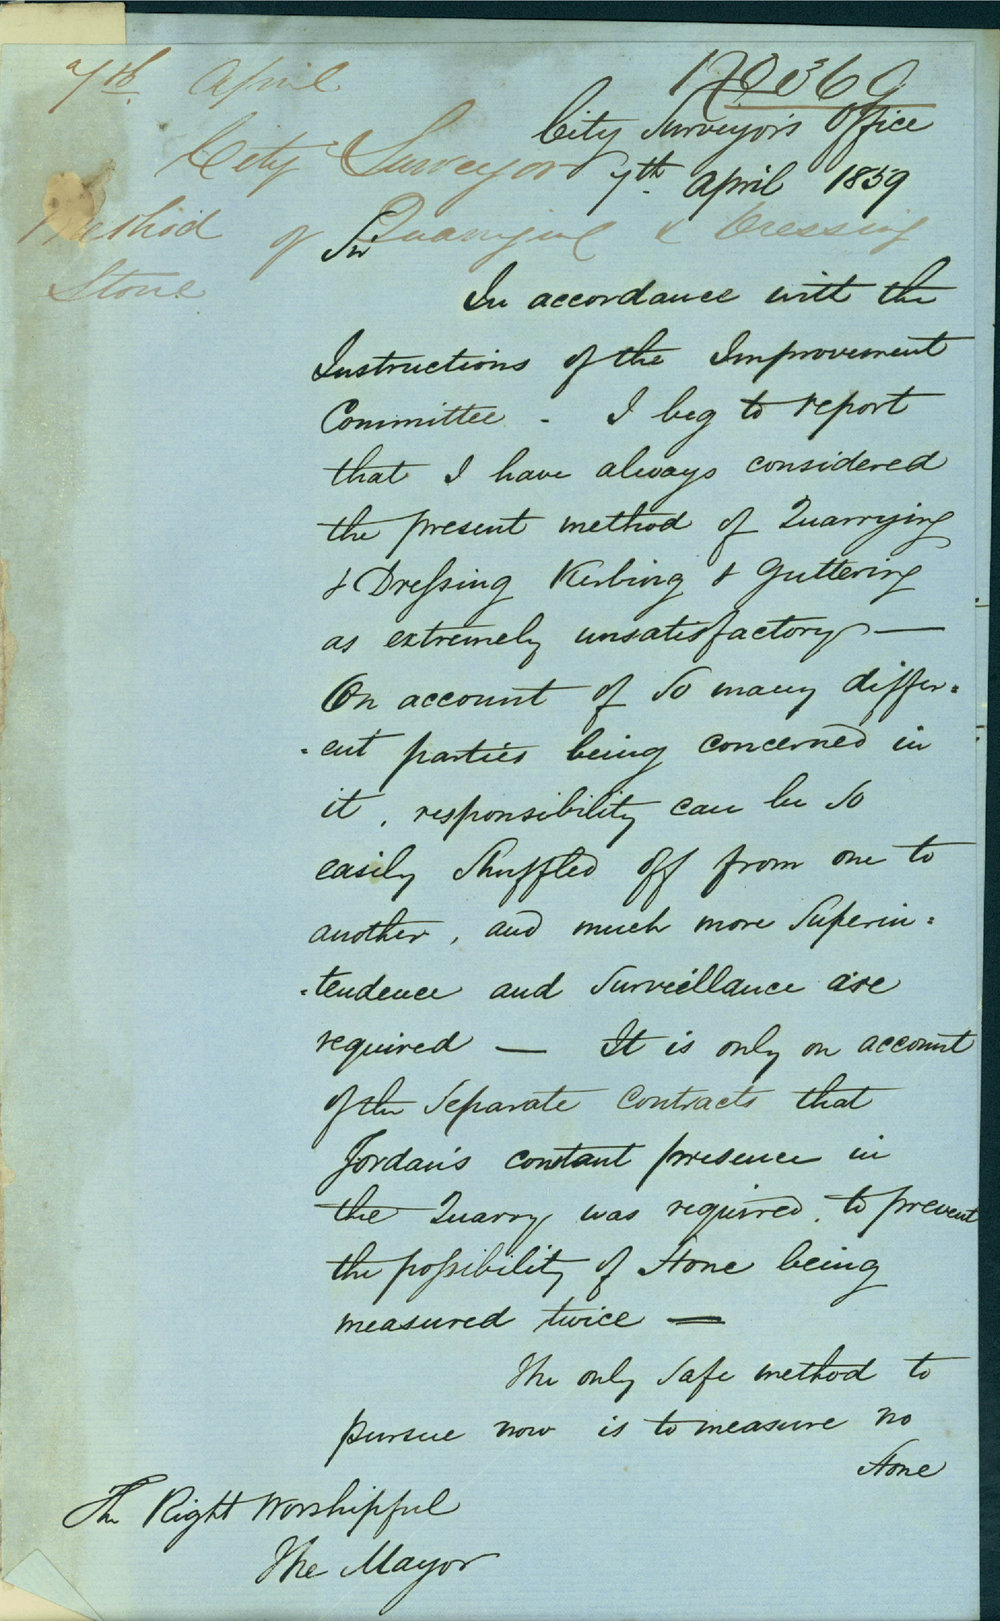 7th April
City Surveyor
Method of Quarrying & Dressing
Stone
City Surveyor's Office
7th April 1859
Sir
In accordance with the
Instructions of the Improvement
Committee - I beg to report
that I have always considered
the present method of Quarrying
& Dressing Kerbing & Guttering
as extremely unsatisfactory —
On account of so many differ=
=ent parties being concerned in
it, responsibility can be so
easily shuffled off from one to
another, and much more Superin=
=tendence and Surveillance are
required — It is only on account
of the Separate Contracts that
Jordan's constant presence in
the Quarry was required, to prevent
the possibility of Stone being
measured twice —
The only safe method to
pursue now is to measure no
Stone
The Right Worshipful
The Mayor